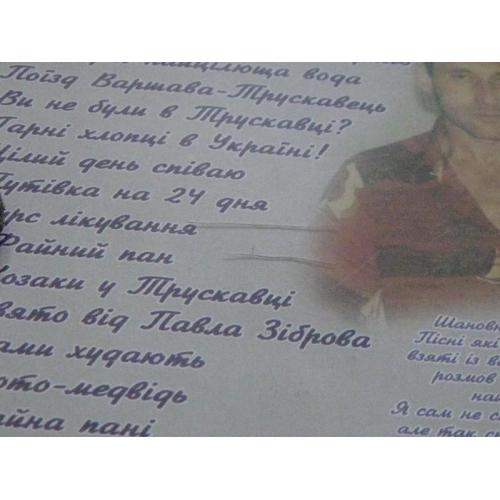 найцілюща вода
Поїзд Варшава-Трускавець
Ви не були в Трускавці?
Гарні хлопці в Україні!
Цілий день співаю
Путівка на 24 дня
Курс лікування
Файний пан
Козаки у Трускавці
Свято від Павла Зіброва
худають
медвідь
пані
Шановн
Пісні які
взяті із
розмов
Я сам не
але так